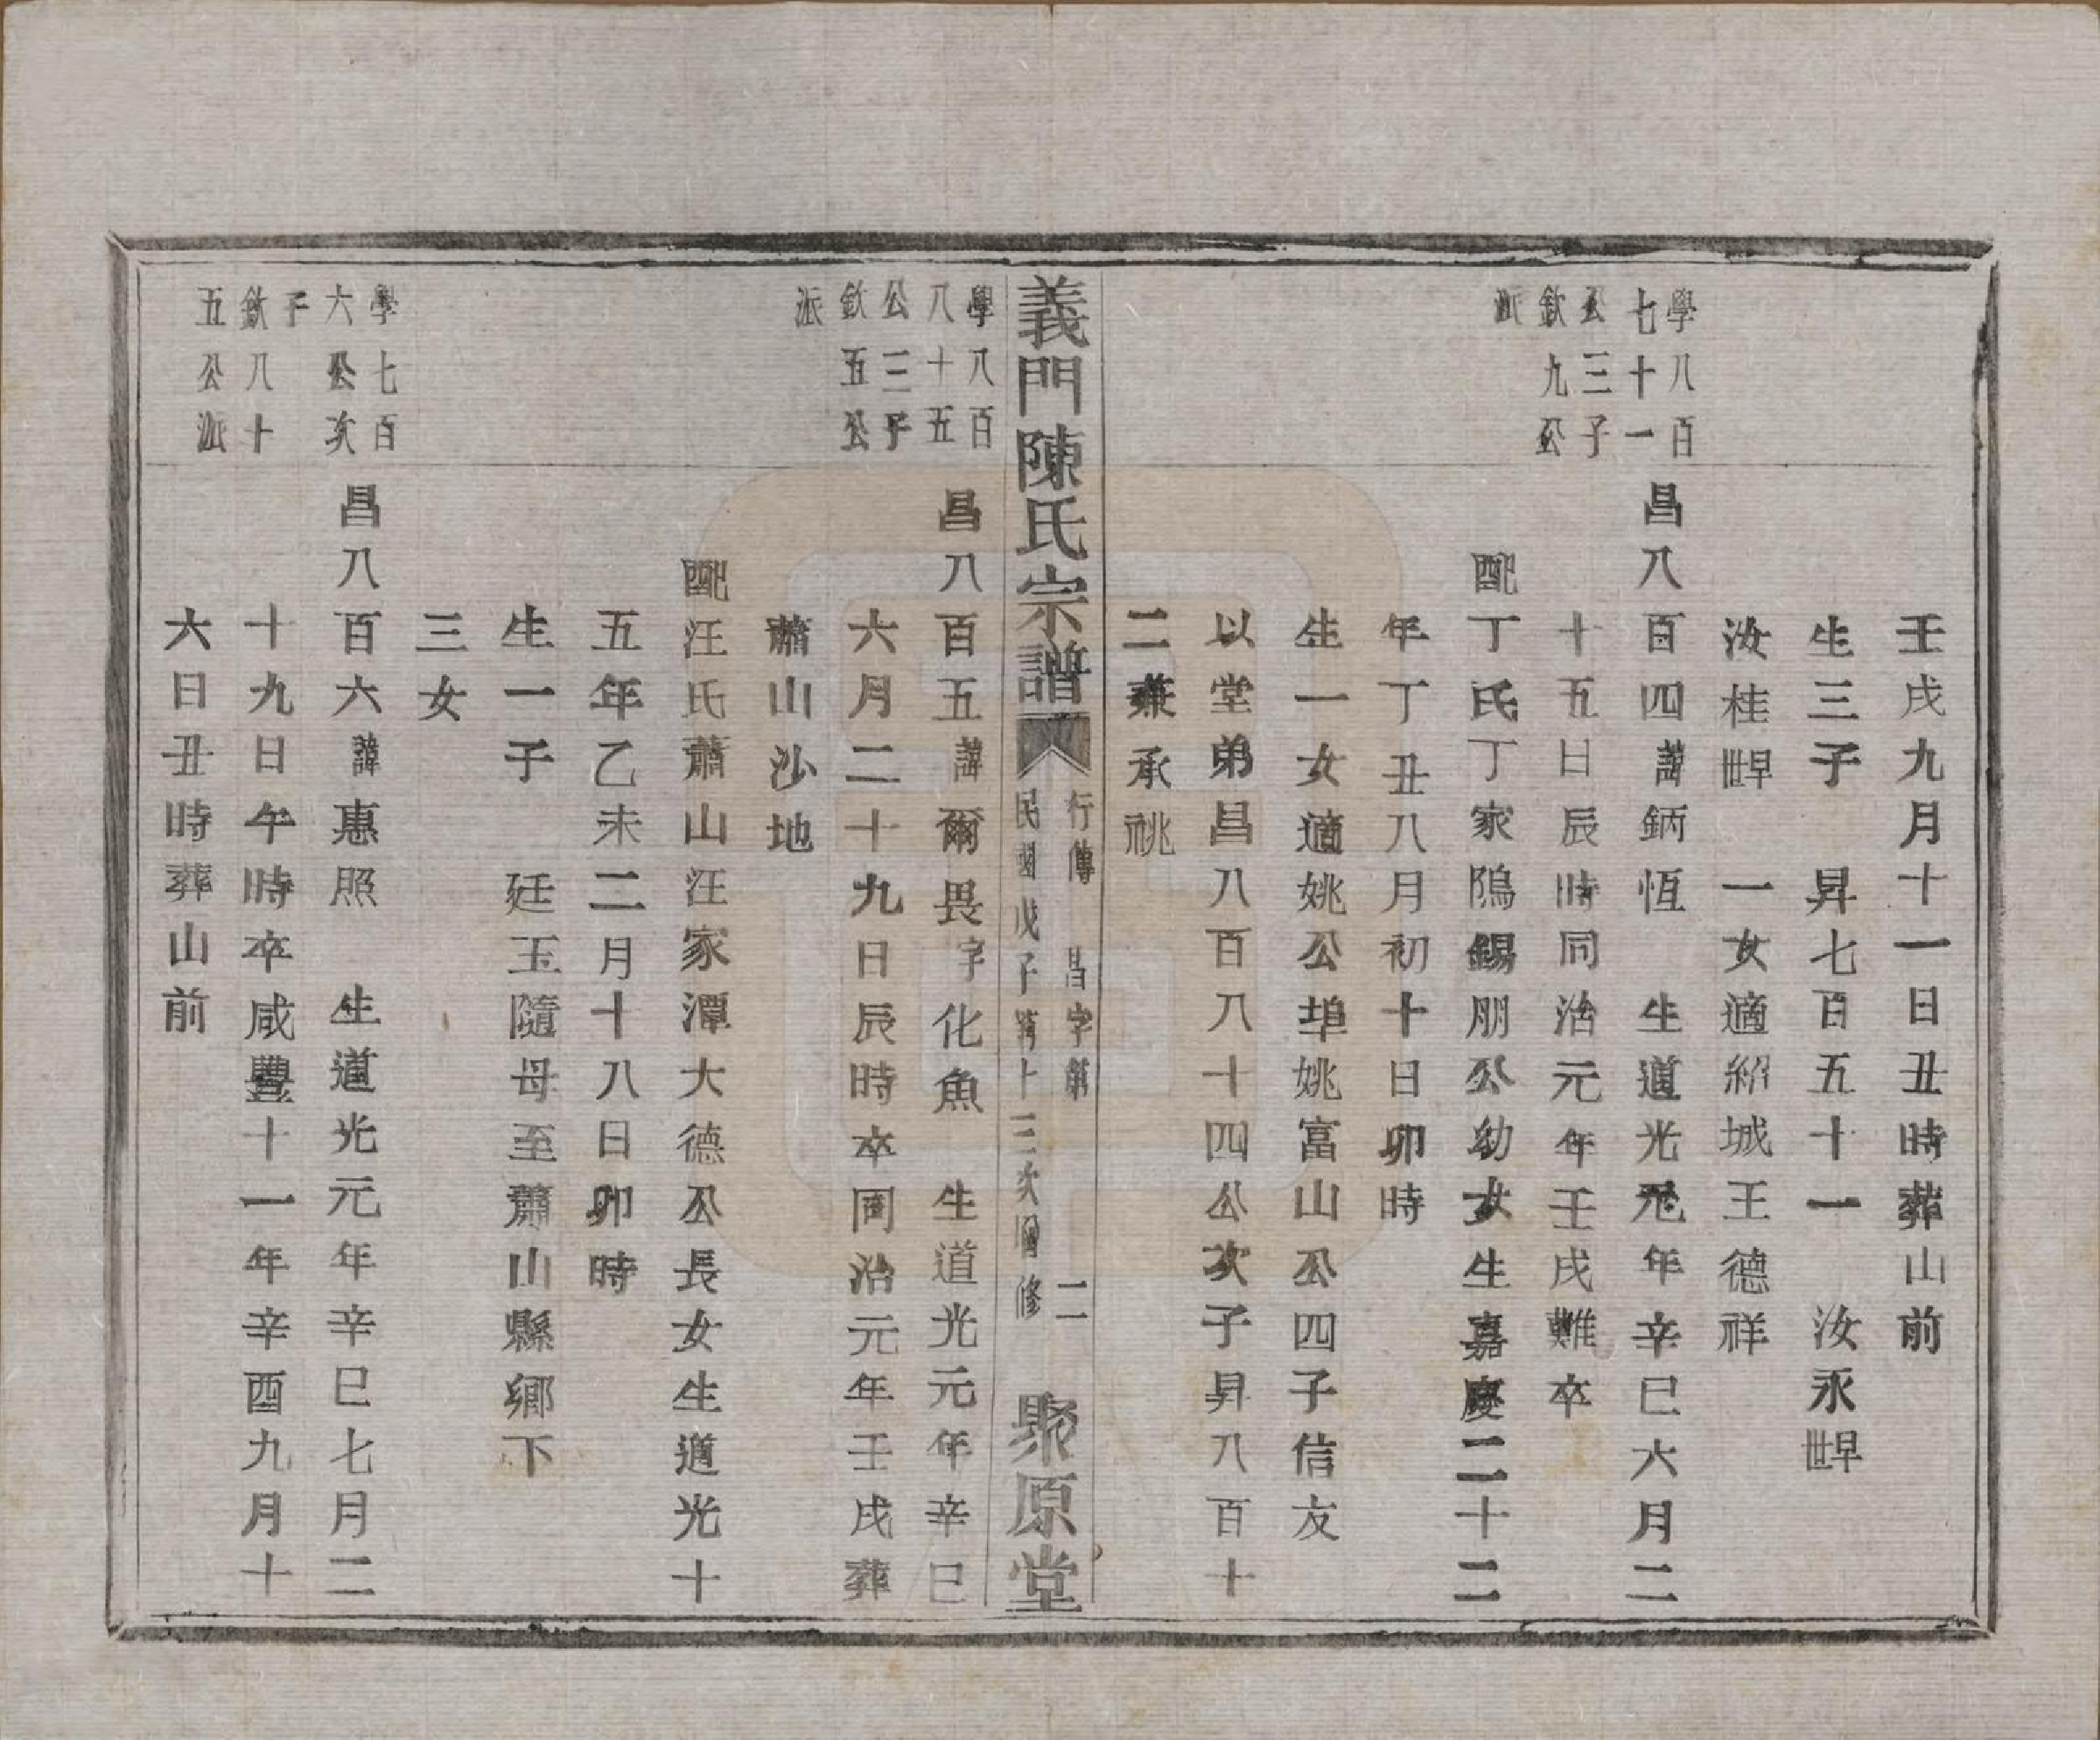 壬戌九月十一日丑時葬山前
生三子　昇七百五十一　汝永世早
汝桂世早　一女適紹城王德祥
學八百
七十一
公三子
欽九公
派
昌八百四諱鈵恆　生道光元年辛巳六月二
十五日辰時同治元年壬戌難卒
配丁氏丁家隝錫朋公幼女生嘉慶二十二
年丁丑八月初十日卯時
生一女適姚公埠姚富山公四子信友
以堂弟昌八百八十四公次子昇八百十
二兼承祧
義門陳氏宗譜
行傳　昌字第　二
民國戊子第十三次增修
聚原堂
學八百
八十五
公三子
欽五公
派
昌八百五諱爾畏字化魚　生道光元年辛巳
六月二十九日辰時卒同治元年壬戌葬
蕭山沙地
配汪氏蕭山汪家潭大德公長女生道光十
五年乙未二月十八日卯時
生一子　廷玉隨母至蕭山縣鄉下
三女
學七百
六公次
子
欽八十
五公派
昌八百六諱惠照　生道光元年辛巳七月二
十九日午時卒咸豐十一年辛酉九月十
六日丑時葬山前